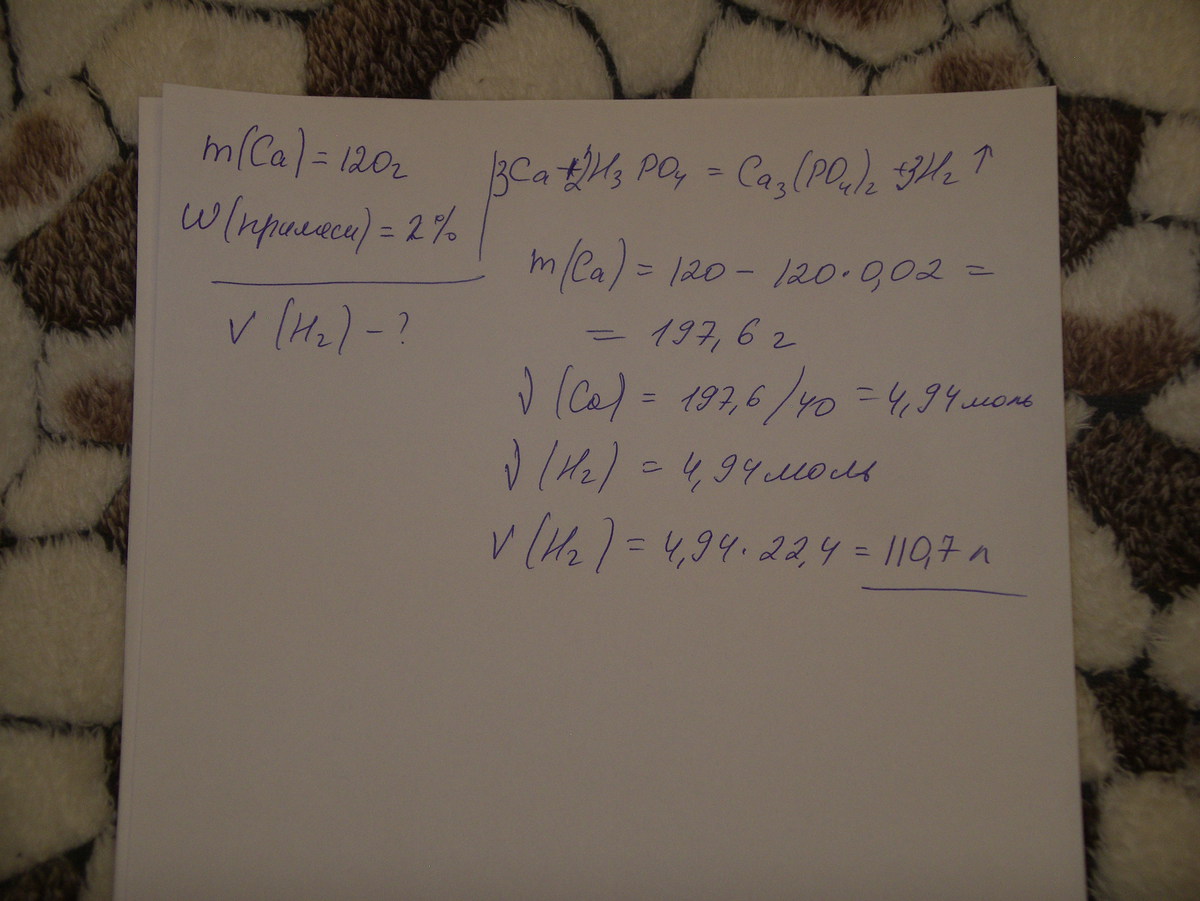 m(Ca) = 120г
W(примеси) = 2%
V (H₂) - ?
3Ca + 2H₃PO₄ = Ca₃(PO₄)₂ + 3H₂↑
m(Ca) = 120 - 120·0,02 =
= 197,6 г
ν (Ca) = 197,6/40 = 4,94 моль
ν (H₂) = 4,94 моль
V (H₂) = 4,94·22,4 = 110,7 л